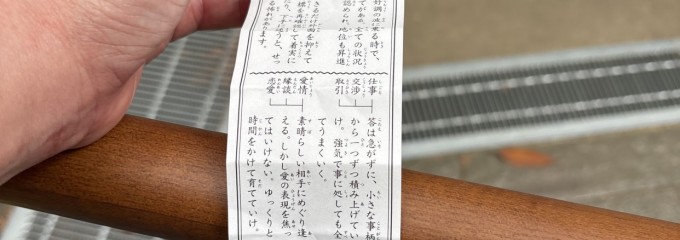 好調の波に乗る時で、
がある。全ての状況
認められ、地位も昇進
きるだけ計画を抑えて
を再吟味して着実に
うと、せっ
る恐れがあります。
仕事
交渉
取引
答は急がずに、小さな事柄
から一つずつ積み上げてい
け。強気で事に処しても全
てうまくいく。
愛情
縁談
恋愛
素晴らしい相手にめぐり逢
える。しかし愛の表現を焦っ
てはいけない。ゆっくりと
時間をかけて育てていけ。